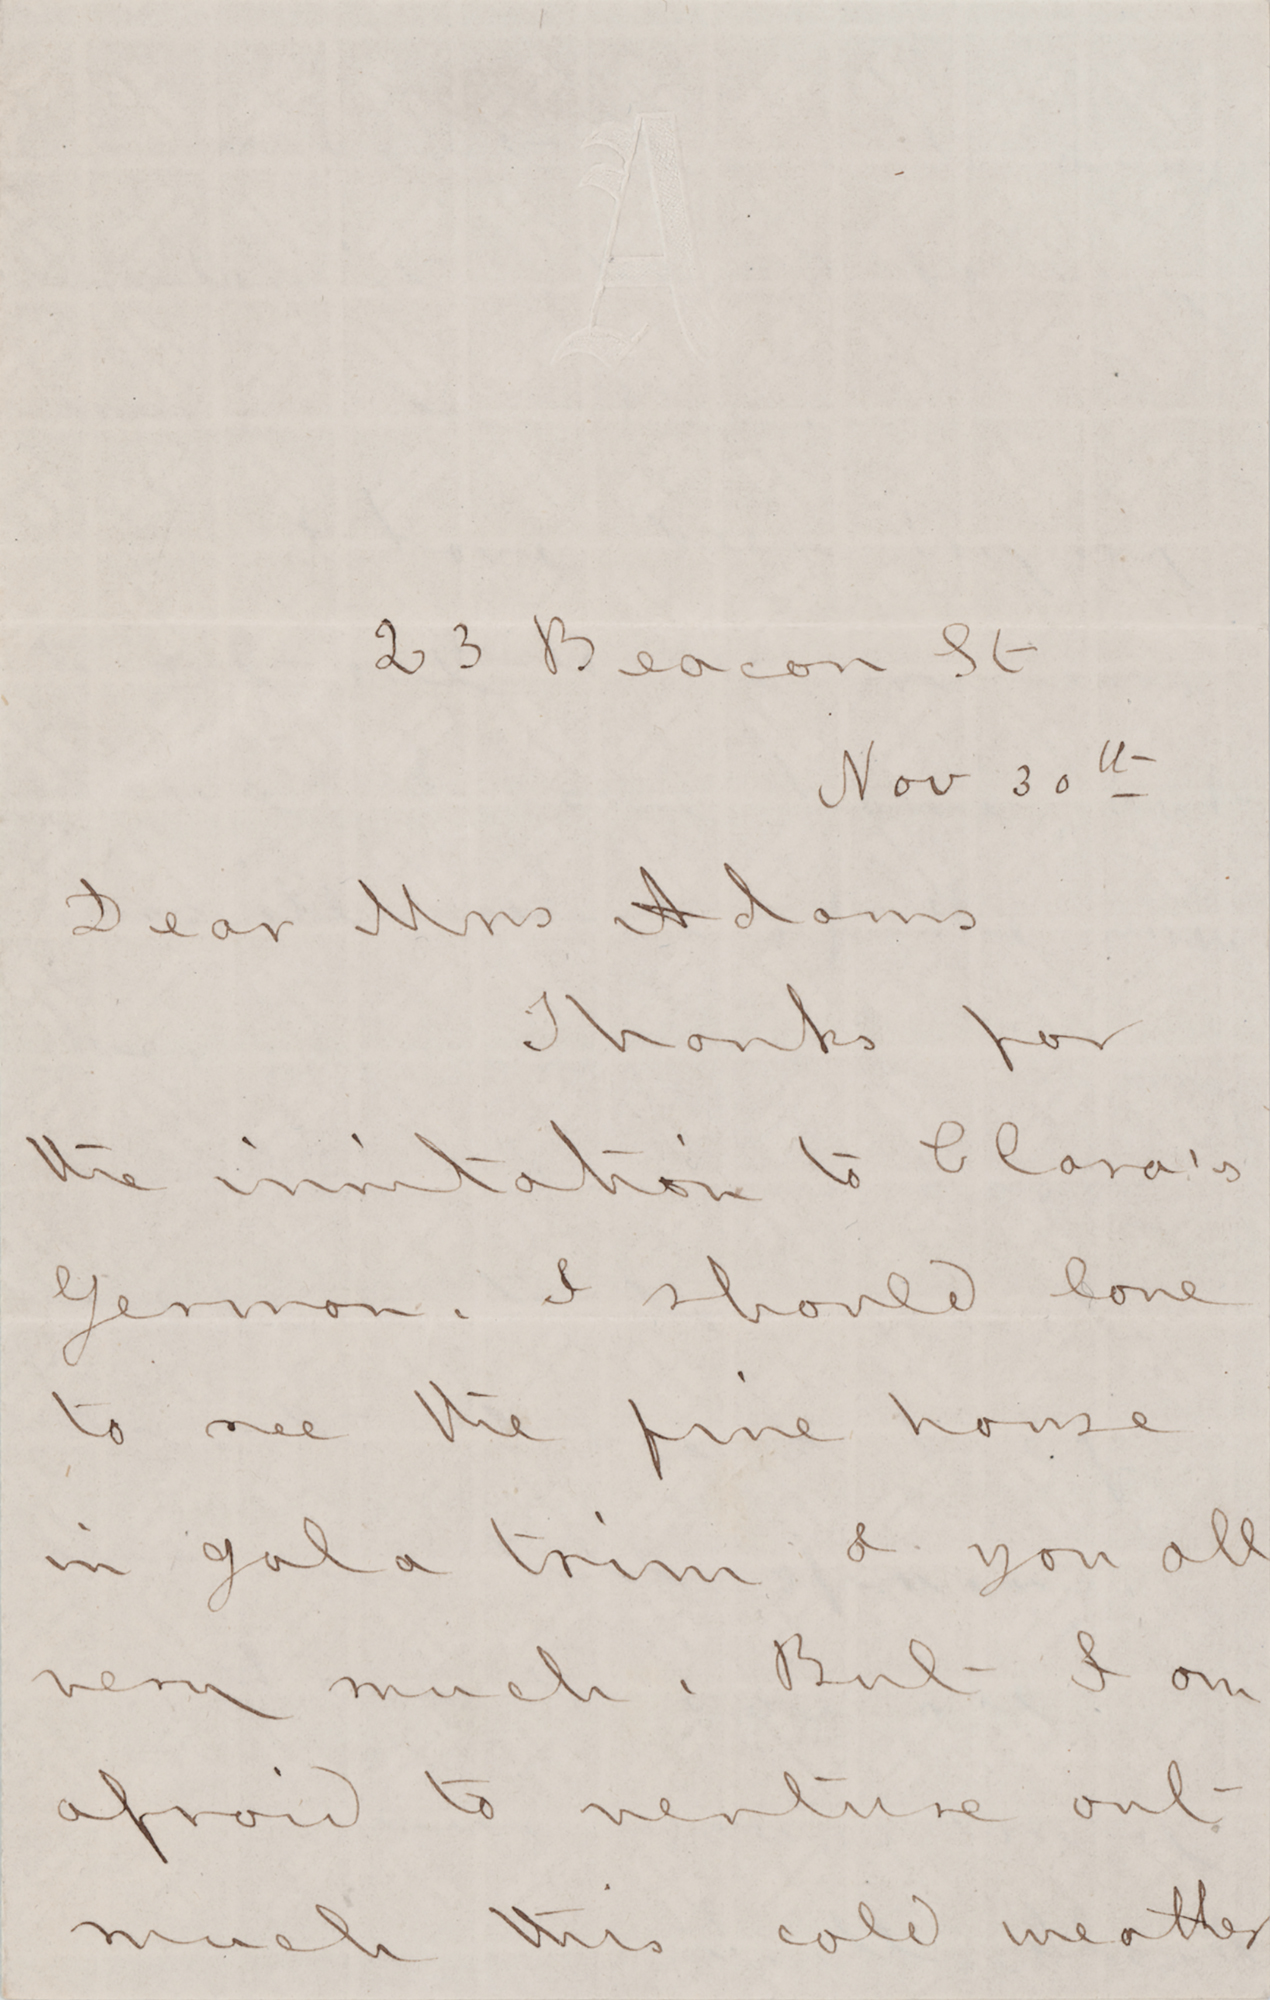 A
23 Beacon St
Nov 30th
Dear Mrs Adams
Thanks for
the invitation to Clara's
German. I should love
to see the fine house
in gala trim & you all
very much. But I am
afraid to venture out
much this cold weather